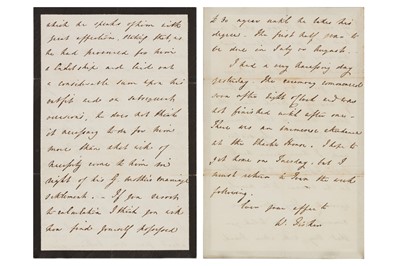 which he speaks of him with
great affection, stating that, as
he had procured for him
a Cadetship and laid out
a considerable sum upon his
outfit and on subsequent
occasions, he does not think
it necessary to do for him
more than what will of
necessity come to him in
right of his G. mother's marriage
settlement. — If you
to calculation I think you will
how find yourself
to do again until he takes his
degree. The first half year to
be due in July or August.
I had a very harassing day
yesterday. The ceremony commenced
soon after eight o'clock and was
not finished until after one.
There was an immense attendance
at the House. I hope to
get home on Tuesday, but I
must return to Town the week
following.
Ever your affecte
W.